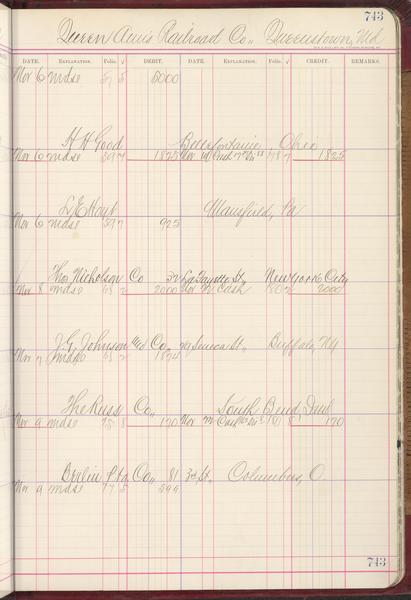 743
Queen Ann's Railroad Co., Queenstown, Md
DATE. EXPLANATION. Folio. √ DEBIT. DATE. EXPLANATION. Folio. √ CREDIT. REMARKS.
Nov 6 mdse 5000
H H Good Bellefontaine Ohio
Nov 6 mdse 597 1825 Nov Cash 787 1825
L E Hoyt Mansfield, Pa
Nov 6 mdse 597 925
Thos Nicholson Co 32 La Fayette St, New York City
Nov 8 mdse 2000 Nov Cash 802 2000
J. G. Johnson Med Co., 79 Seneca St., Buffalo, NY
Nov 7 mdse 1874
The Russ Co., South Bend, Ind
Nov 9 mdse 120 Nov Cash 120
Berlin Ptg Co., 81 3rd St. Columbus, O.
Nov 9 mdse 599
743